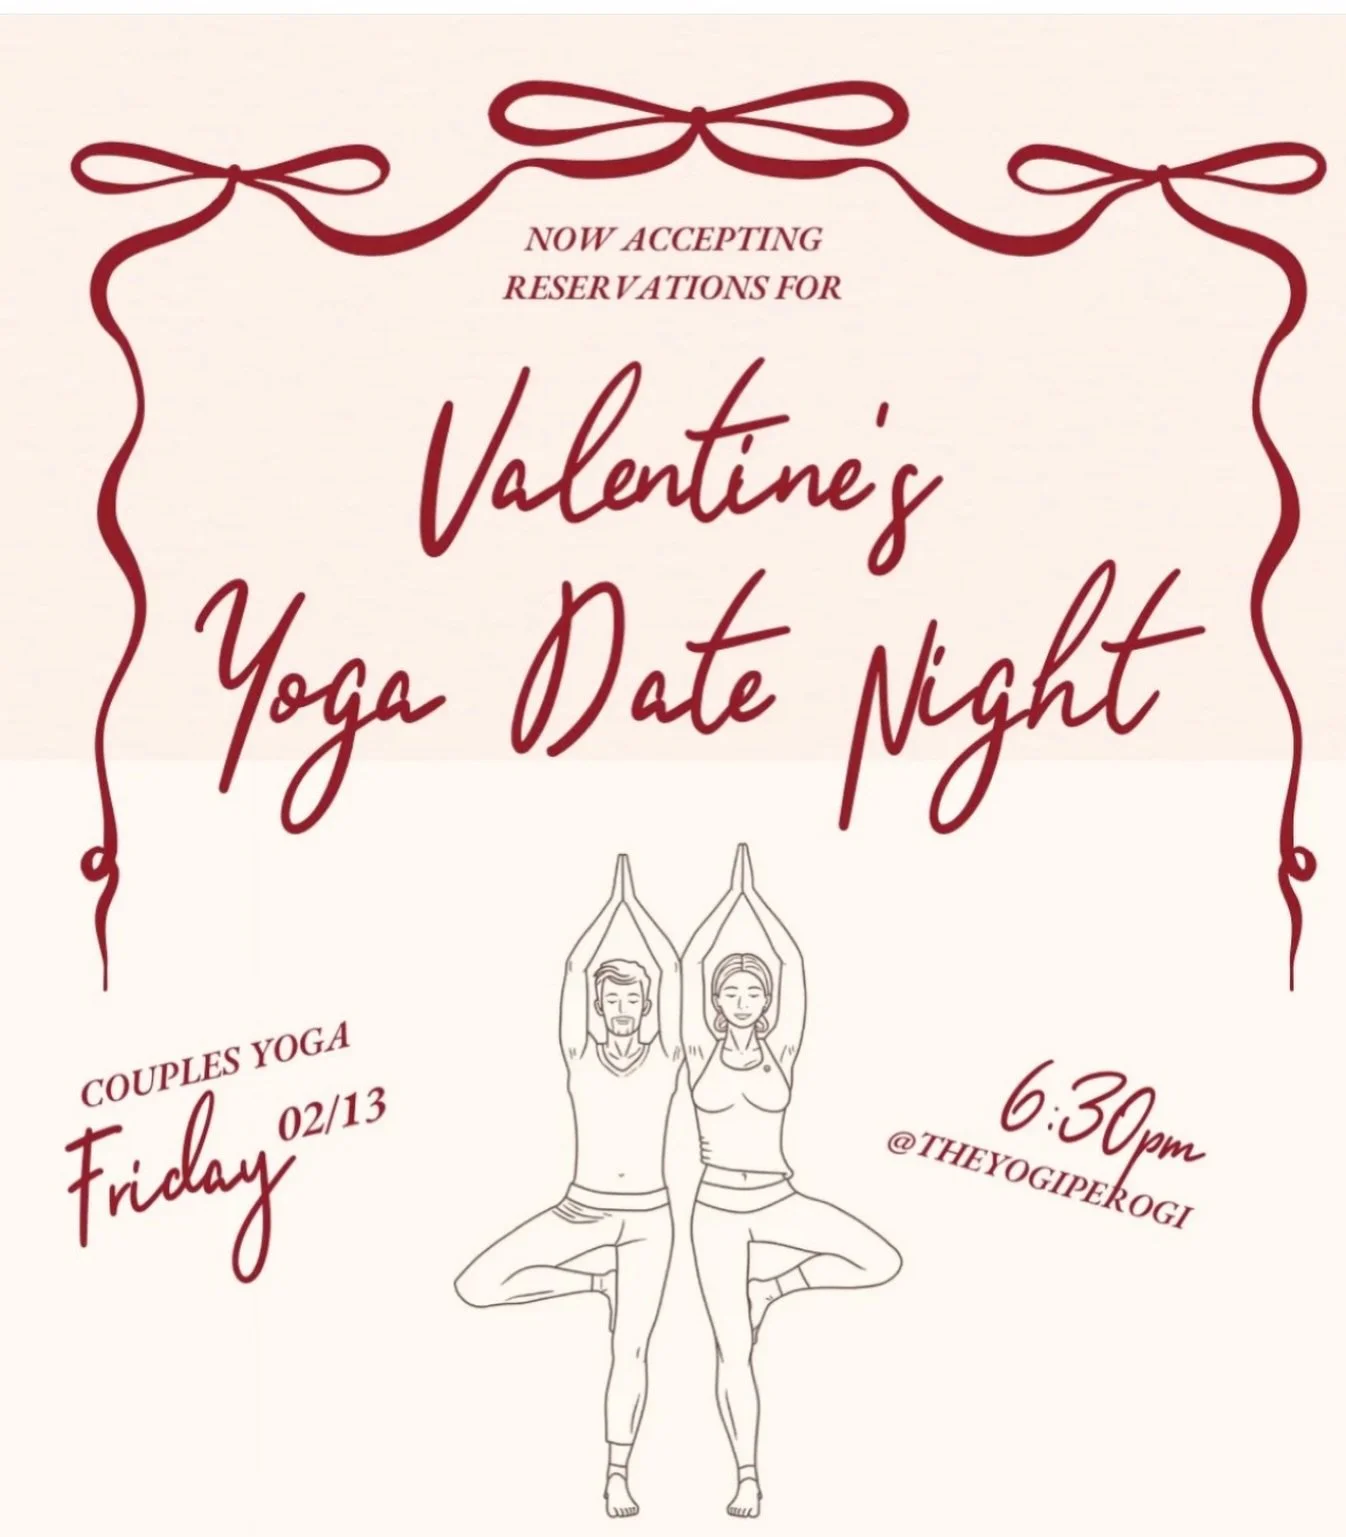 NOW ACCEPTING
RESERVATIONS FOR
Valentine's
Yoga Date Night
COUPLES YOGA
Friday 02/13
6:30pm
@THEYOGIPEROGI